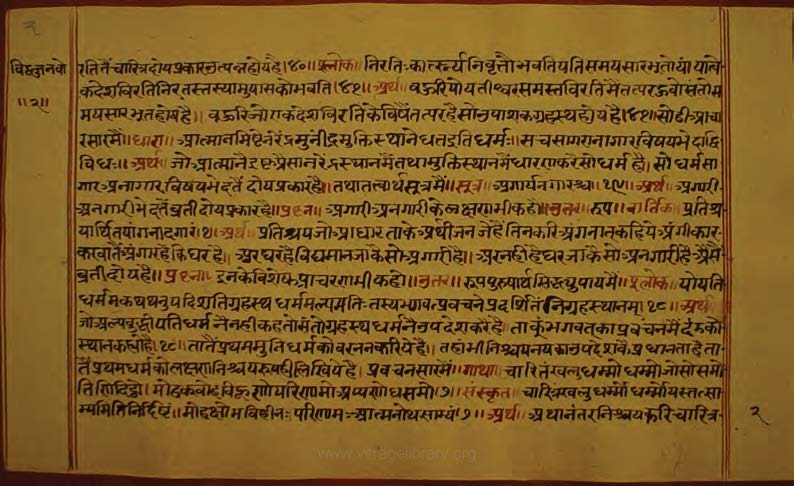 २
विद्वज्जनबो
॥२॥
रतितैं चारित्र दोय प्रकार उत्पन्न होय है ।४०॥ श्लोक ॥ निरतिः कार्त्स्न्यनिवृत्तौ भवति यति समयसारभूतोयं या त्वे
कदेशविरतिनिरतस्तस्यामुपासको भवति ।४१॥ अर्थ ॥ बहुरि यो यतीश्वर समस्तविरतिमैं तत्पर हुवो संतो स
मयसारभूत होय है ॥ बहुरि जो एकदेश विरतिकेविषैं तत्पर है सो उपाशक ग्रहस्थ होय है ।४१॥ सोही आचा
रसारमैं ॥ धारा ॥ आत्मानमिष्टनरेंद्रमुनींद्रमुक्तिस्थाने धत इति धर्मः ॥ सच सागारानागारविषयभेदाद्वि
विधः ॥ अर्थ ॥ जो आत्माने इष्ट प्रैसा नरेंद्रस्थानमैं तथा मुक्तिस्थानमैं धारण करै सो धर्म है । सो धर्म सा
गार अनागार विषय भेदतैं दोय प्रकार है ॥ तथा तत्वार्थसूत्रमैं ॥ सूत्र ॥ अगार्यनगारश्च ॥१९॥ अर्थ ॥ अगारी
अनगारी भेदतैं व्रती दोय प्रकार है ॥ प्रश्न ॥ अगारी अनगारी के लक्षण भी कहो ॥ उत्तर ॥ रूप ॥ वार्तिक ॥ प्रतिश्र
यार्थितयांगनादगारं ॥ अर्थ ॥ प्रतिश्रय जो आधार ताके अर्थी जन जे हैं तिनकरि अंगनात् कहिये अंगीकार
करवातैं अगार है कि घर है ॥ अर घर है विद्यमान जाकै सो अगारी है ॥ अर नही है घर जाकै सो अनगारी है अैसैं
व्रती दोय है ॥ प्रश्न ॥ इनके विशेष आचरण भी कहो ॥ उत्तर ॥ रूप पुरुषार्थसिद्ध्युपायमैं ॥ श्लोक ॥ यो यति
धर्ममकथयन्नुपदिशति ग्रहस्थधर्ममल्पमतिः तस्य भगवत्प्रवचने प्रदर्शितं निग्रहस्थानम् ।१८॥ अर्थ
जो अल्पबुद्धी यतिधर्मनैं नही कहतो संतो ग्रहस्थधर्मनैं उपदेश करै है । ताकूं भगवतका प्रवचनमैं दंडको
स्थान कह्यो है ।१८॥ तातैं प्रथम मुनिधर्मको वरनन करिये है ॥ तहां भी निश्चयनयका उपदेशकै प्रधानता है ता
तैं प्रथम धर्मको लक्षण निश्चयरूपही लिखिये है ॥ प्रवचनसारमैं ॥ गाथा ॥ चारित्तं खलु धम्मो धम्मो जो सो समो
त्ति णिद्दिट्ठो । मोहक्खोहविहूणो परिणामो अप्पणो ध समो ।७॥ संस्कृत ॥ चारित्रं खलु धर्म्मो धर्म्मोयस्तत्सा
म्यमिति निर्दिष्टं ॥ मोहक्षोभविहीनः परिणाम आत्मनो ध साम्यं ।७॥ अर्थ ॥ अथानंतर निश्चयकरि चारित्र
२
www.vitragelibrary.org